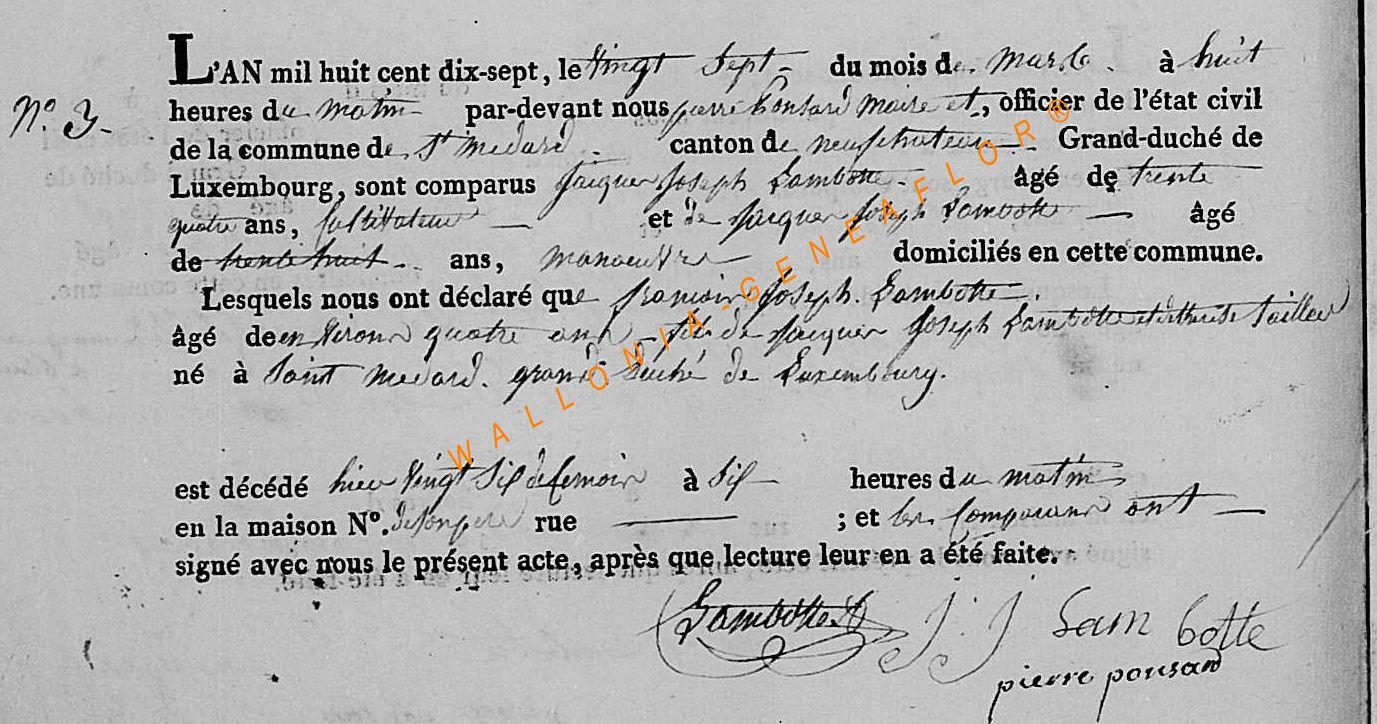 L'AN mil huit cent dix-sept, le vingt sept du mois de mars à huit
N.o 3.
heures du matin par-devant nous pierre Ponsard Maire et, officier de l'état civil
de la commune de St Medard canton de neufchateau Grand-duché de
Luxembourg, sont comparus Jacques Joseph Lambotte âgé de trente
quatre ans, et de Jacques Joseph Lambotte âgé
de trente huit ans, manoeuvre domiciliés en cette commune.
Lesquels nous ont déclaré que francois Joseph Lambotte
âgé de environs quatre ans fils de Jacques Joseph Lambotte et
né à Saint Medard grand duché de Luxembourg.
est décédé hier vingt six de ce mois à six heures du matin
en la maison N°. de son pere rue ; et les Comparans ont
signé avec nous le présent acte, après que lecture leur en a été faite.
Lambotte J. J Lambotte
pierre ponsard
WALLONIA-GENEAFLOR®